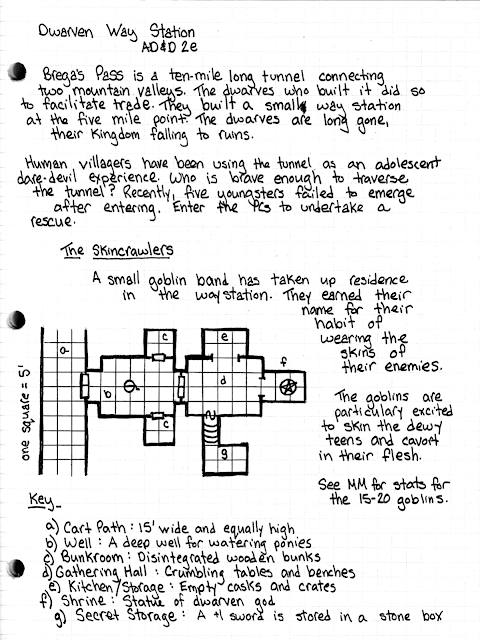 Dwarven Way Station
AD&D 2e
Brega's Pass is a ten-mile long tunnel connecting
two mountain valleys. The dwarves who built it did so
to facilitate trade. They built a small way station
at the five mile point. The dwarves are long gone,
their kingdom falling to ruins.
Human villagers have been using the tunnel as an adolescent
dare-devil experience. Who is brave enough to traverse
the tunnel? Recently, five youngsters failed to emerge
after entering. Enter the PCs to undertake a
rescue.
The Skincrawlers
A small goblin band has taken up residence
in the waystation. They earned their
name for their
habit of
wearing the
skins of
their enemies.
The goblins are
particulary excited
to skin the dewy
teens and cavort
in their flesh.
See MM for stats for
the 15-20 goblins.
one square = 5'
a
b
c
c
d
e
f
g
Key
a) Cart Path : 15' wide and equally high
b) Well : A deep well for watering ponies
c) Bunkroom : Disintegrated wooden bunks
d) Gathering Hall : Crumbling tables and benches
e) Kitchen/Storage : Empty casks and crates
f) Shrine : Statue of dwarven god
g) Secret Storage : A +1 sword is stored in a stone box